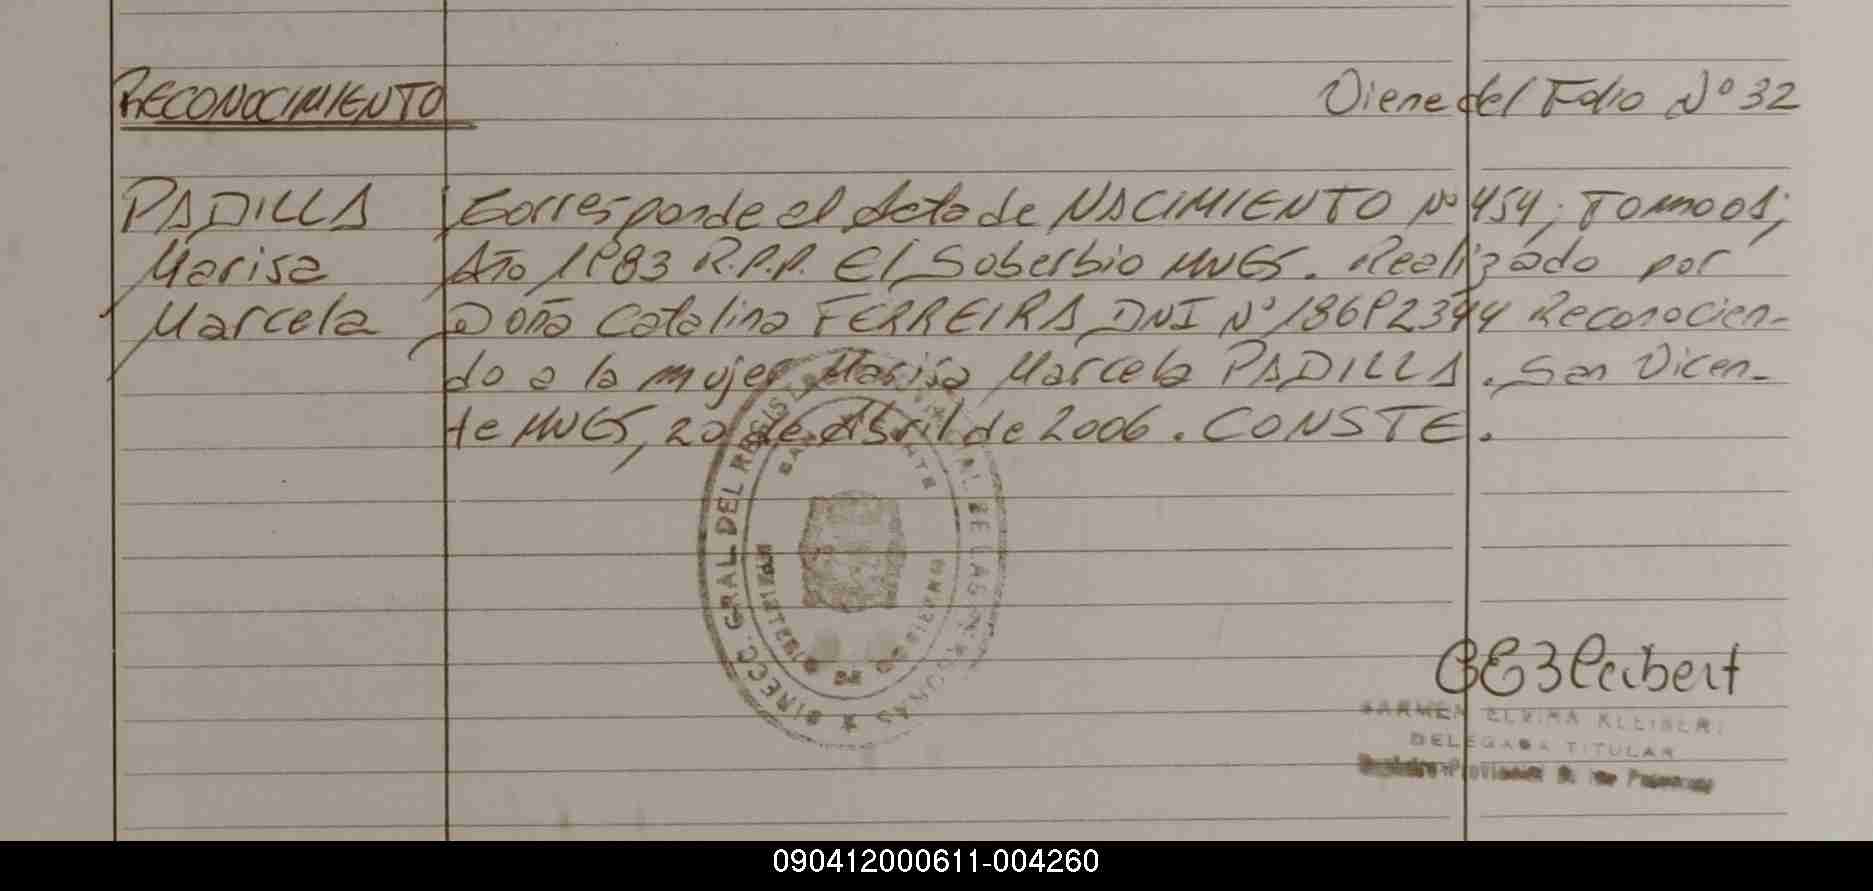 RECONOCIMIENTO
Viene del Folio Nº 32
PADILLA
Marisa
Marcela
Corresponde al Acta de NACIMIENTO Nº 454; TOMO 01;
Año 1983 R.P.P. El Soberbio MNES. Realizado por
Doña Catalina FERREIRA DNI Nº 18692394 Reconocien-
do a la mujer Marisa Marcela PADILLA. San Vicen-
te MNES, 20 de Abril de 2006. CONSTE.
DIRECC. GRAL. DEL REGIS DE LAS PERSONAS
MINISTERIO DE GOBIERNO
CARMEN ELVIRA KLEIBERT
DELEGADA TITULAR
Registro Provincial de las Personas
090412000611-004260